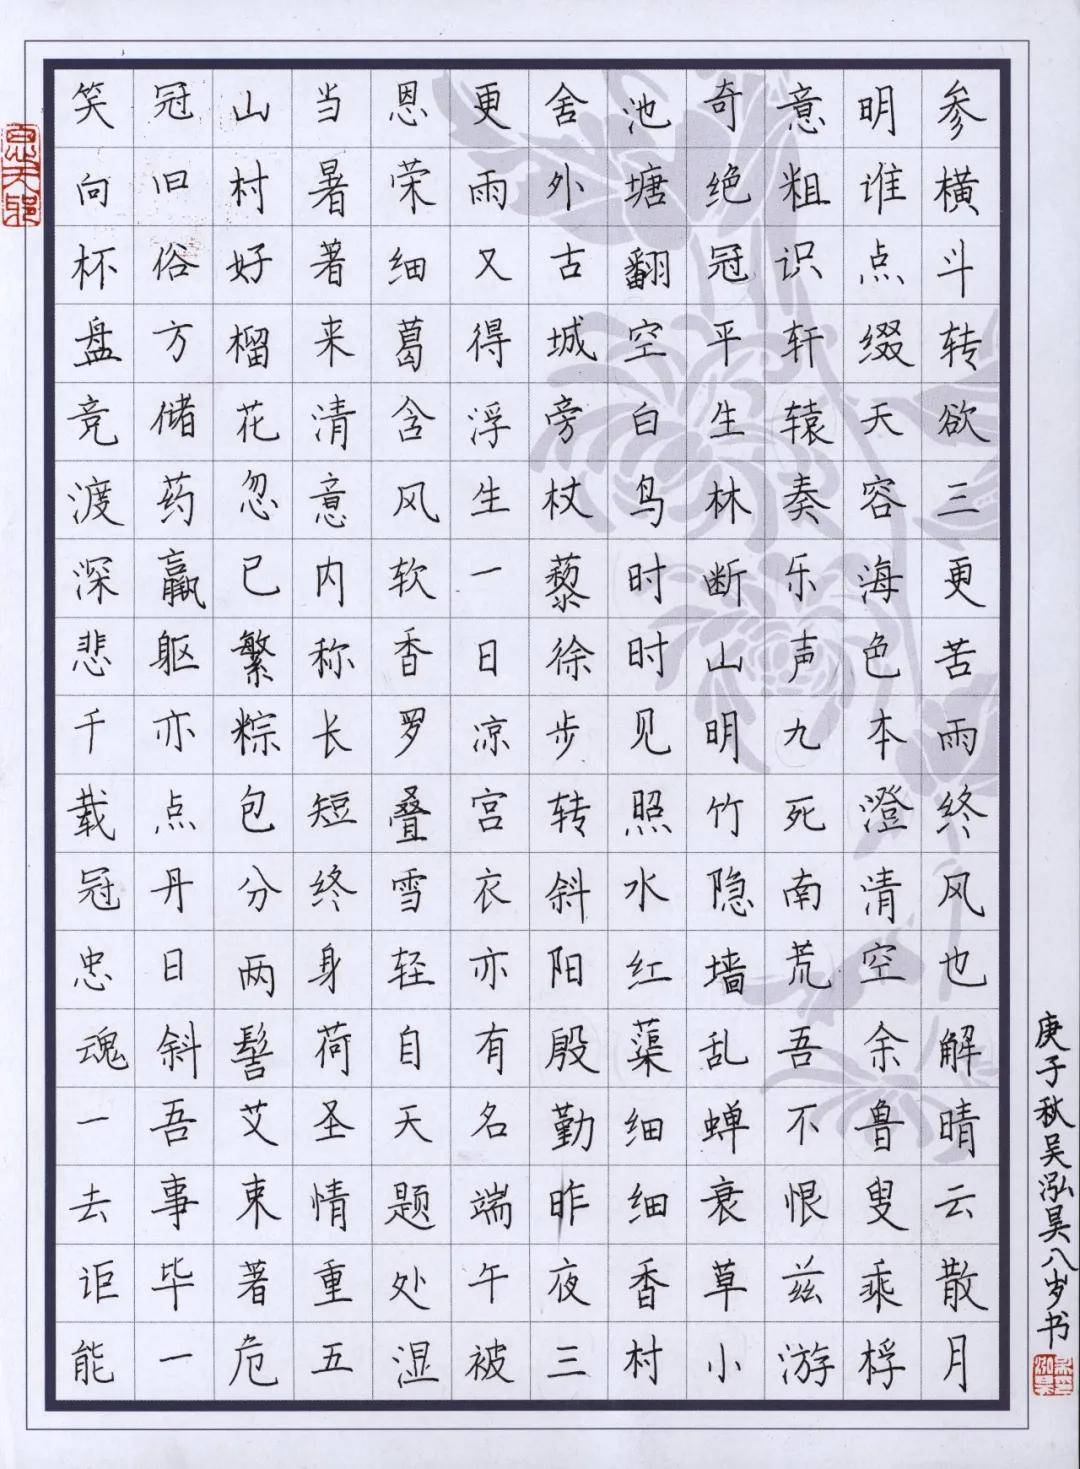 参横斗转欲三更苦雨终风也解晴云散月
明谁点缀天容海色本澄清空余鲁叟乘桴
意粗识轩辕奏乐声九死南荒吾不恨兹游
奇绝冠平生林断山明竹隐墙乱蝉衰草小
池塘翻空白鸟时时见照水红蕖细细香村
舍外古城旁杖藜徐步转斜阳殷勤昨夜三
更雨又得浮生一日凉宫衣亦有名端午被
恩荣细葛含风软香罗叠雪轻自天题处湿
当暑著来清意内称长短终身荷圣情重五
山村好榴花忽已繁粽包分两髻艾束著危
冠旧俗方储药羸躯亦点丹日斜吾事毕一
笑向杯盘竞渡深悲千载冠忠魂一去讵能
庚子秋吴泓昊八岁书
思无邪